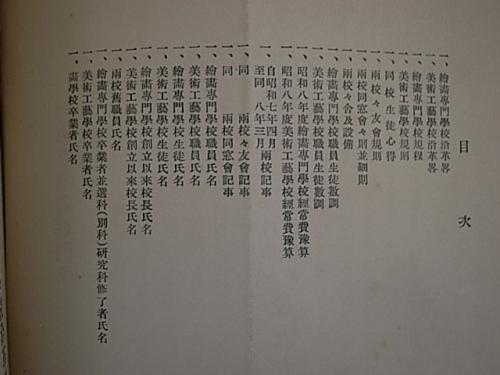 目次
一、繪畫專門學校沿革畧
一、美術工藝學校沿革畧
一、繪畫專門學校規程
一、美術工藝學校規則
一、同校生徒心得
一、兩校々友會規則
一、兩校同窓會々則並細則
一、兩校々舍及設備
一、繪畫專門學校職員生徒數調
一、美術工藝學校職員生徒數調
一、昭和八年度繪畫專門學校經常費豫算
一、昭和八年度美術工藝學校經常費豫算
一、自昭和七年四月至同八年三月兩校記事
一、同 兩校々友會記事
一、同 兩校同窓會記事
一、繪畫專門學校職員氏名
一、美術工藝學校職員氏名
一、繪畫專門學校生徒氏名
一、美術工藝學校生徒氏名
一、繪畫專門學校創立以來校長氏名
一、美術工藝學校創立以來校長氏名
一、兩校舊職員氏名
一、繪畫專門學校卒業者並選科(別科)研究科修了者氏名
一、美術工藝學校卒業者氏名
一、畵學校卒業者氏名